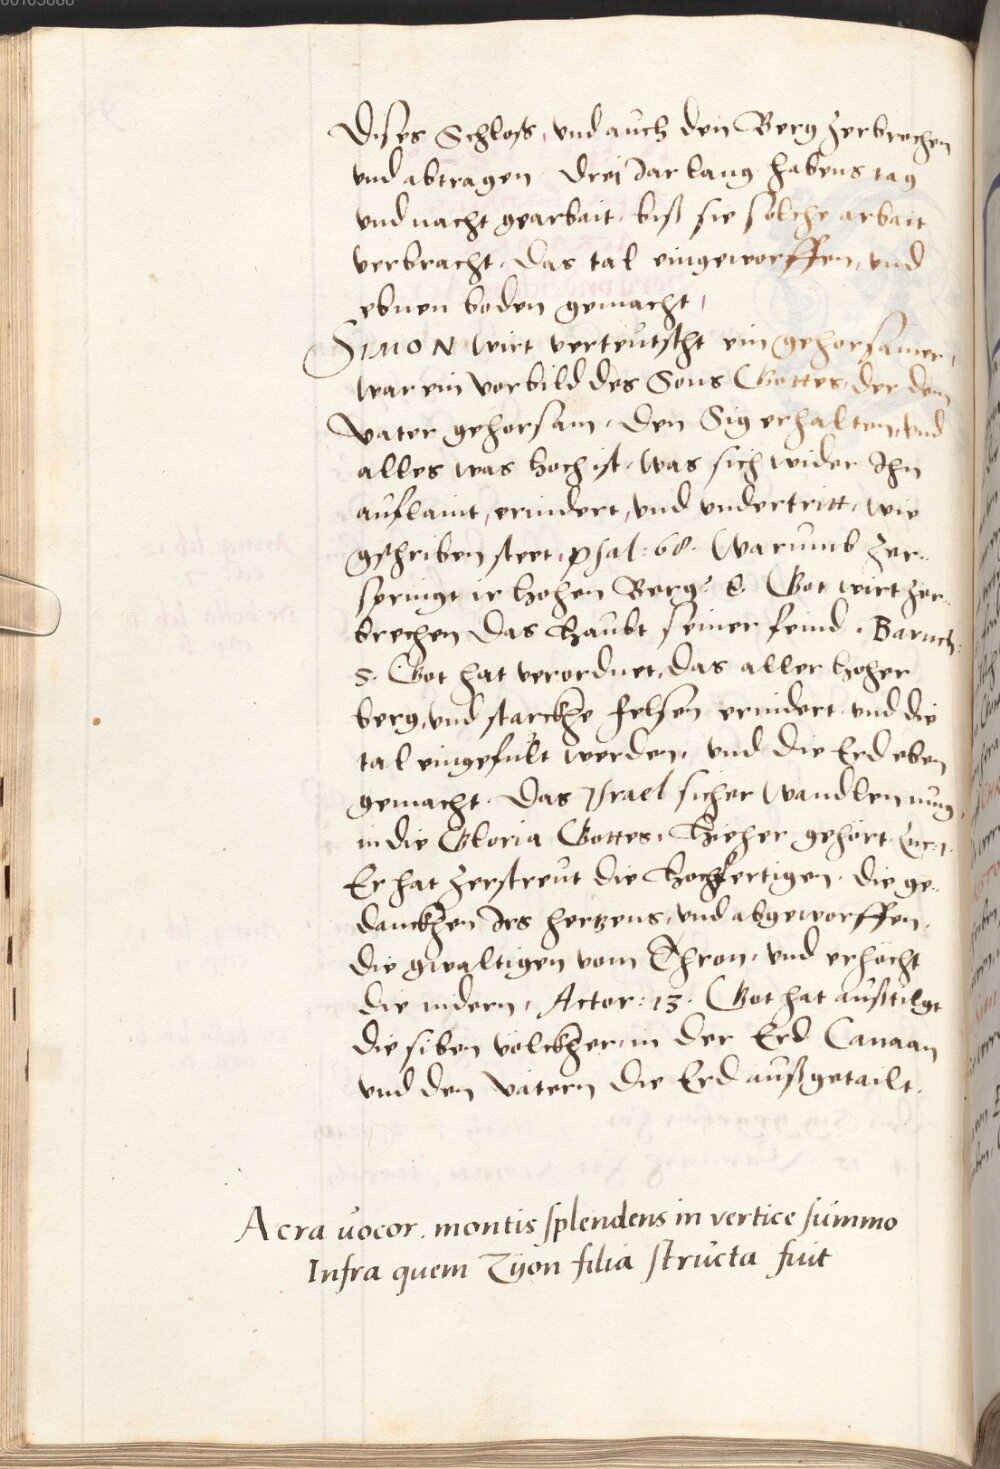 Dises Schloss, vnd auch den Berg zerbrechen
vnd abtragen Drei Jar lang habens tag
vnd nacht gearbait, biß sie solche arbait
verbracht, Das tal eingeworffen, vnd
ebnen boden gemacht,
SIMON wirt verteutscht ein gehorsamer,
war ein vorbild des Sons Gottes, der dem
Vater gehorsam, den Sig erhalten, vnd
alles was hoch ist, was sich wider Ihn
auflaint, ernidert, vnd vndertritt, wie
gschriben steet, psal: 68. Warumb zer-
springt ir hohen Berg? &. Got wirt zer-
brechen das Haubt seiner feind. Baruch:
5. Got hat verordnet, das aller hoher
berg, vnd starckhe felsen ernidert vnd die
tal eingefült werden, vnd die Erd eben
gemacht. Das Israel sicher wandlen mug
in die Gloria Gottes, Hieher gehört Luc: 1.
Er hat zerstreut die Hochfertigen, die ge-
danckhen Irs hertzens, vnd abgeworffen,
die gwaltigen vom Thron, vnd erhöcht
die nidern, Actor: 13. Got hat außtilgt
die siben völckher, in der Erd Canaan
vnd den Vätern die Erd außgetailt.
Acra uocor, montis splendens in vertice summo
Infra quem Zÿon filia structa fuit